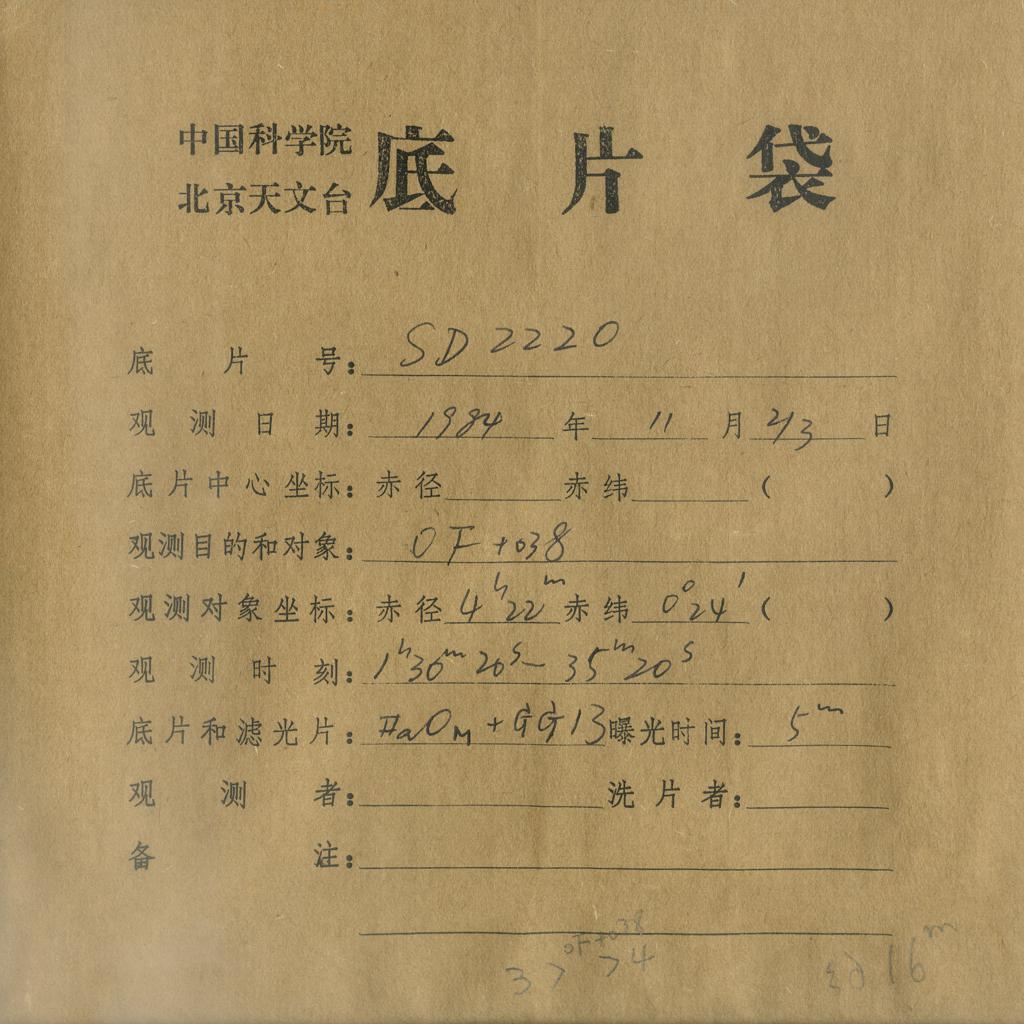 中国科学院
北京天文台 底片袋
底片号: SD2220
观测日期: 1984 年 11 月 2/3 日
底片中心坐标: 赤径 赤纬 ( )
观测目的和对象: OF+038
观测对象坐标: 赤径 4ʰ22ᵐ 赤纬 0°24′ ( )
观测时刻: 1ʰ30ᵐ20ˢ—35ᵐ20ˢ
底片和滤光片: IIaOM+GG13 曝光时间: 5ᵐ
观测者: 洗片者:
备注:
OF+038
16ᵐ